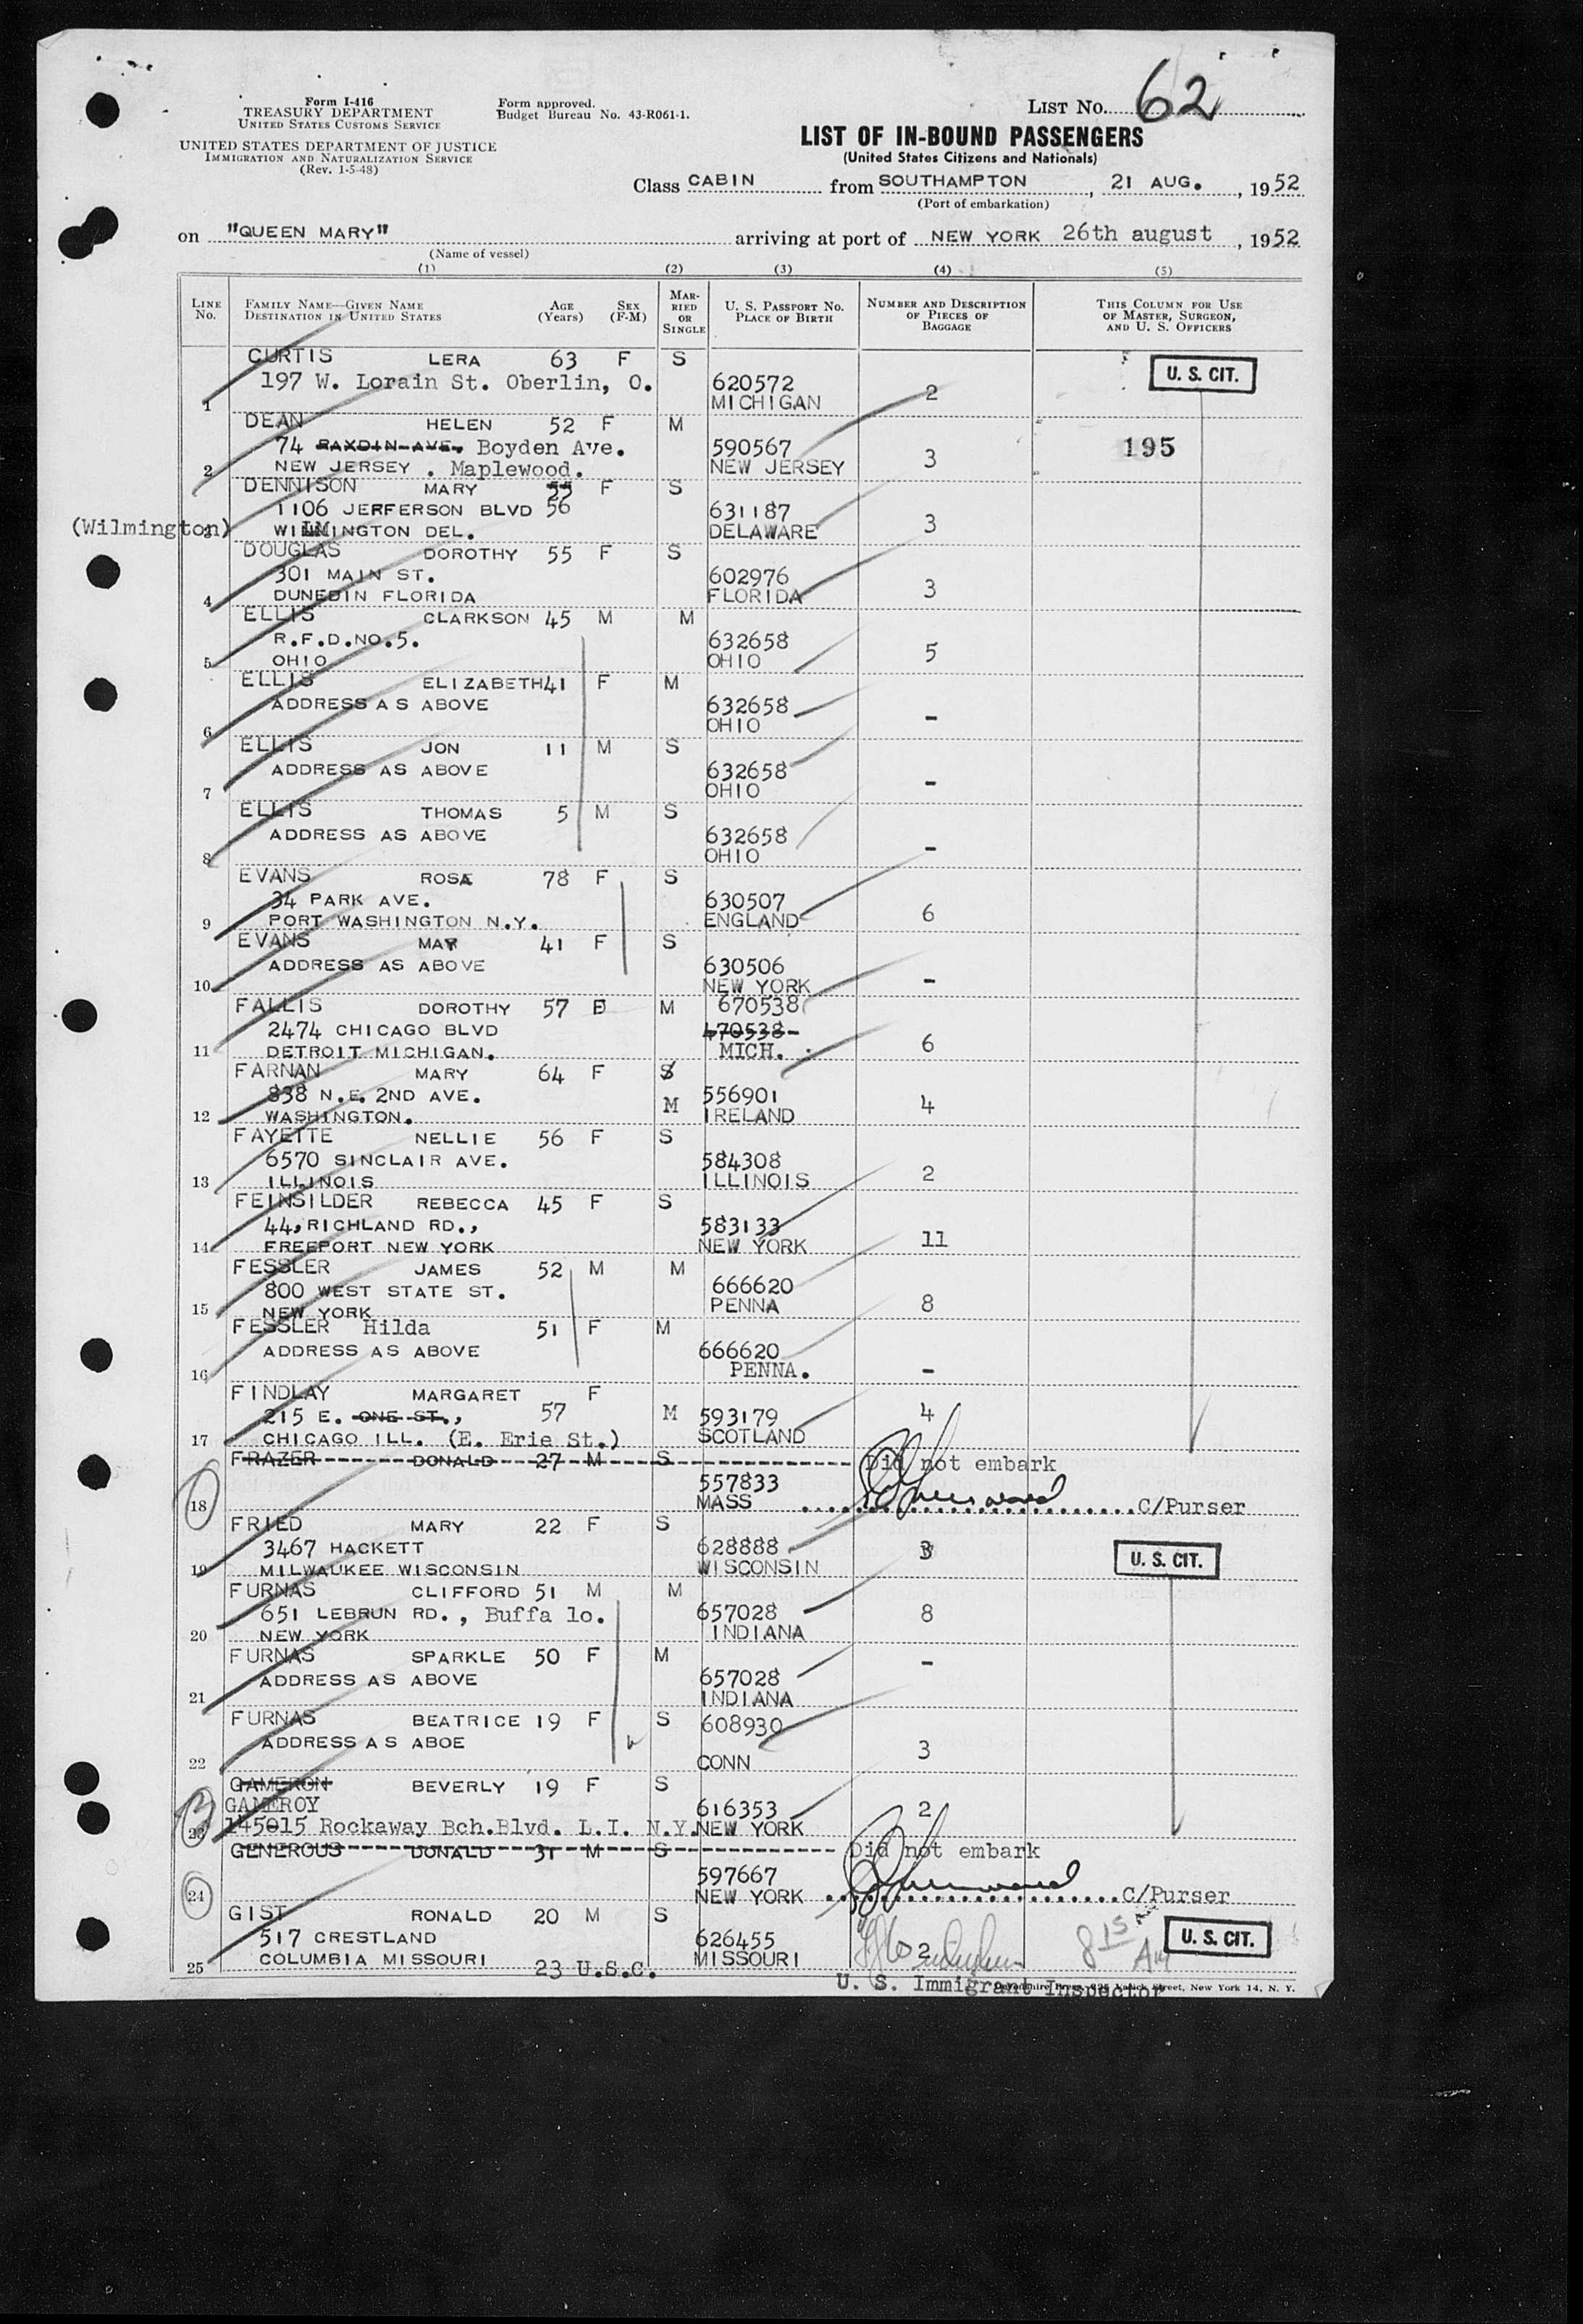 Form I-416
TREASURY DEPARTMENT
UNITED STATES CUSTOMS SERVICE
UNITED STATES DEPARTMENT OF JUSTICE
IMMIGRATION AND NATURALIZATION SERVICE
(Rev. 1-5-48)
Form approved.
Budget Bureau No. 43-R061-1.
LIST NO. 62
LIST OF IN-BOUND PASSENGERS
(United States Citizens and Nationals)
Class CABIN from SOUTHAMPTON, 21 AUG., 1952
(Port of embarkation)
on "QUEEN MARY" arriving at port of NEW YORK 26th august, 1952
(Name of vessel)
(1) (2) (3) (4) (5)
LINE No. FAMILY NAME—GIVEN NAME DESTINATION IN UNITED STATES AGE (Years) SEX (F-M) MARRIED OR SINGLE U. S. PASSPORT NO. PLACE OF BIRTH NUMBER AND DESCRIPTION OF PIECES OF BAGGAGE THIS COLUMN FOR USE OF MASTER, SURGEON, AND U. S. OFFICERS
CURTIS LERA 63 F S U. S. CIT.
197 W. Lorain St. Oberlin, O. 620572
1 MICHIGAN 2
DEAN HELEN 52 F M
74 PAXDIN AVE. Boyden Ave. 590567 195
2 NEW JERSEY . Maplewood. NEW JERSEY 3
DENNISON MARY 55 F S
1106 JEFFERSON BLVD 56 631187
(Wilmington) 3 WILMINGTON DEL. DELAWARE 3
DOUGLAS DOROTHY 55 F S
301 MAIN ST. 602976
4 DUNEDIN FLORIDA FLORIDA 3
ELLIS CLARKSON 45 M M
R.F.D.NO.5. 632658
5 OHIO OHIO 5
ELLIS ELIZABETH 41 F M
ADDRESS AS ABOVE 632658
6 OHIO -
ELLIS JON 11 M S
ADDRESS AS ABOVE 632658
7 OHIO -
ELLIS THOMAS 5 M S
ADDRESS AS ABOVE 632658
8 OHIO -
EVANS ROSE 78 F S
34 PARK AVE. 630507
9 PORT WASHINGTON N.Y. ENGLAND 6
EVANS MAY 41 F S
ADDRESS AS ABOVE 630506
10 NEW YORK -
FALLIS DOROTHY 57 F M 670538
2474 CHICAGO BLVD 470538
11 DETROIT MICHIGAN. MICH. 6
FARNAN MARY 64 F S
838 N.E. 2ND AVE. M 556901
12 WASHINGTON. IRELAND 4
FAYETTE NELLIE 56 F S
6570 SINCLAIR AVE. 584308
13 ILLINOIS ILLINOIS 2
FEINSILDER REBECCA 45 F S
44, RICHLAND RD., 583133
14 FREEPORT NEW YORK NEW YORK 11
FESSLER JAMES 52 M M
800 WEST STATE ST. 666620
15 NEW YORK PENNA 8
FESSLER Hilda 51 F M
ADDRESS AS ABOVE 666620
16 PENNA. -
FINDLAY MARGARET F
215 E. ONE ST., 57 M 593179 4
17 CHICAGO ILL. (E. Erie St.) SCOTLAND
FRAZER DONALD 27 M S Did not embark
557833
18 MASS C/Purser
FRIED MARY 22 F S
3467 HACKETT 628888 3 U. S. CIT.
19 MILWAUKEE WISCONSIN WISCONSIN
FURNAS CLIFFORD 51 M M
651 LEBRUN RD., Buffa lo. 657028 8
20 NEW YORK INDIANA
FURNAS SPARKLE 50 F M
ADDRESS AS ABOVE 657028 -
21 INDIANA
FURNAS BEATRICE 19 F S 608930
ADDRESS AS ABOE
22 CONN 3
GAMERON BEVERLY 19 F S
GAMEROY 616353 2
23 145015 Rockaway Bch.Blvd. L.I. N.Y. NEW YORK
GENEROUS DONALD 31 M S Did not embark
597667
24 NEW YORK C/Purser
GIST RONALD 20 M S
517 CRESTLAND 626455 2 8 15 AM U. S. CIT.
25 COLUMBIA MISSOURI MISSOURI
23 U.S.C.
U. S. Immigrant Inspector
Devonshire Press, 225 Varick Street, New York 14, N. Y.